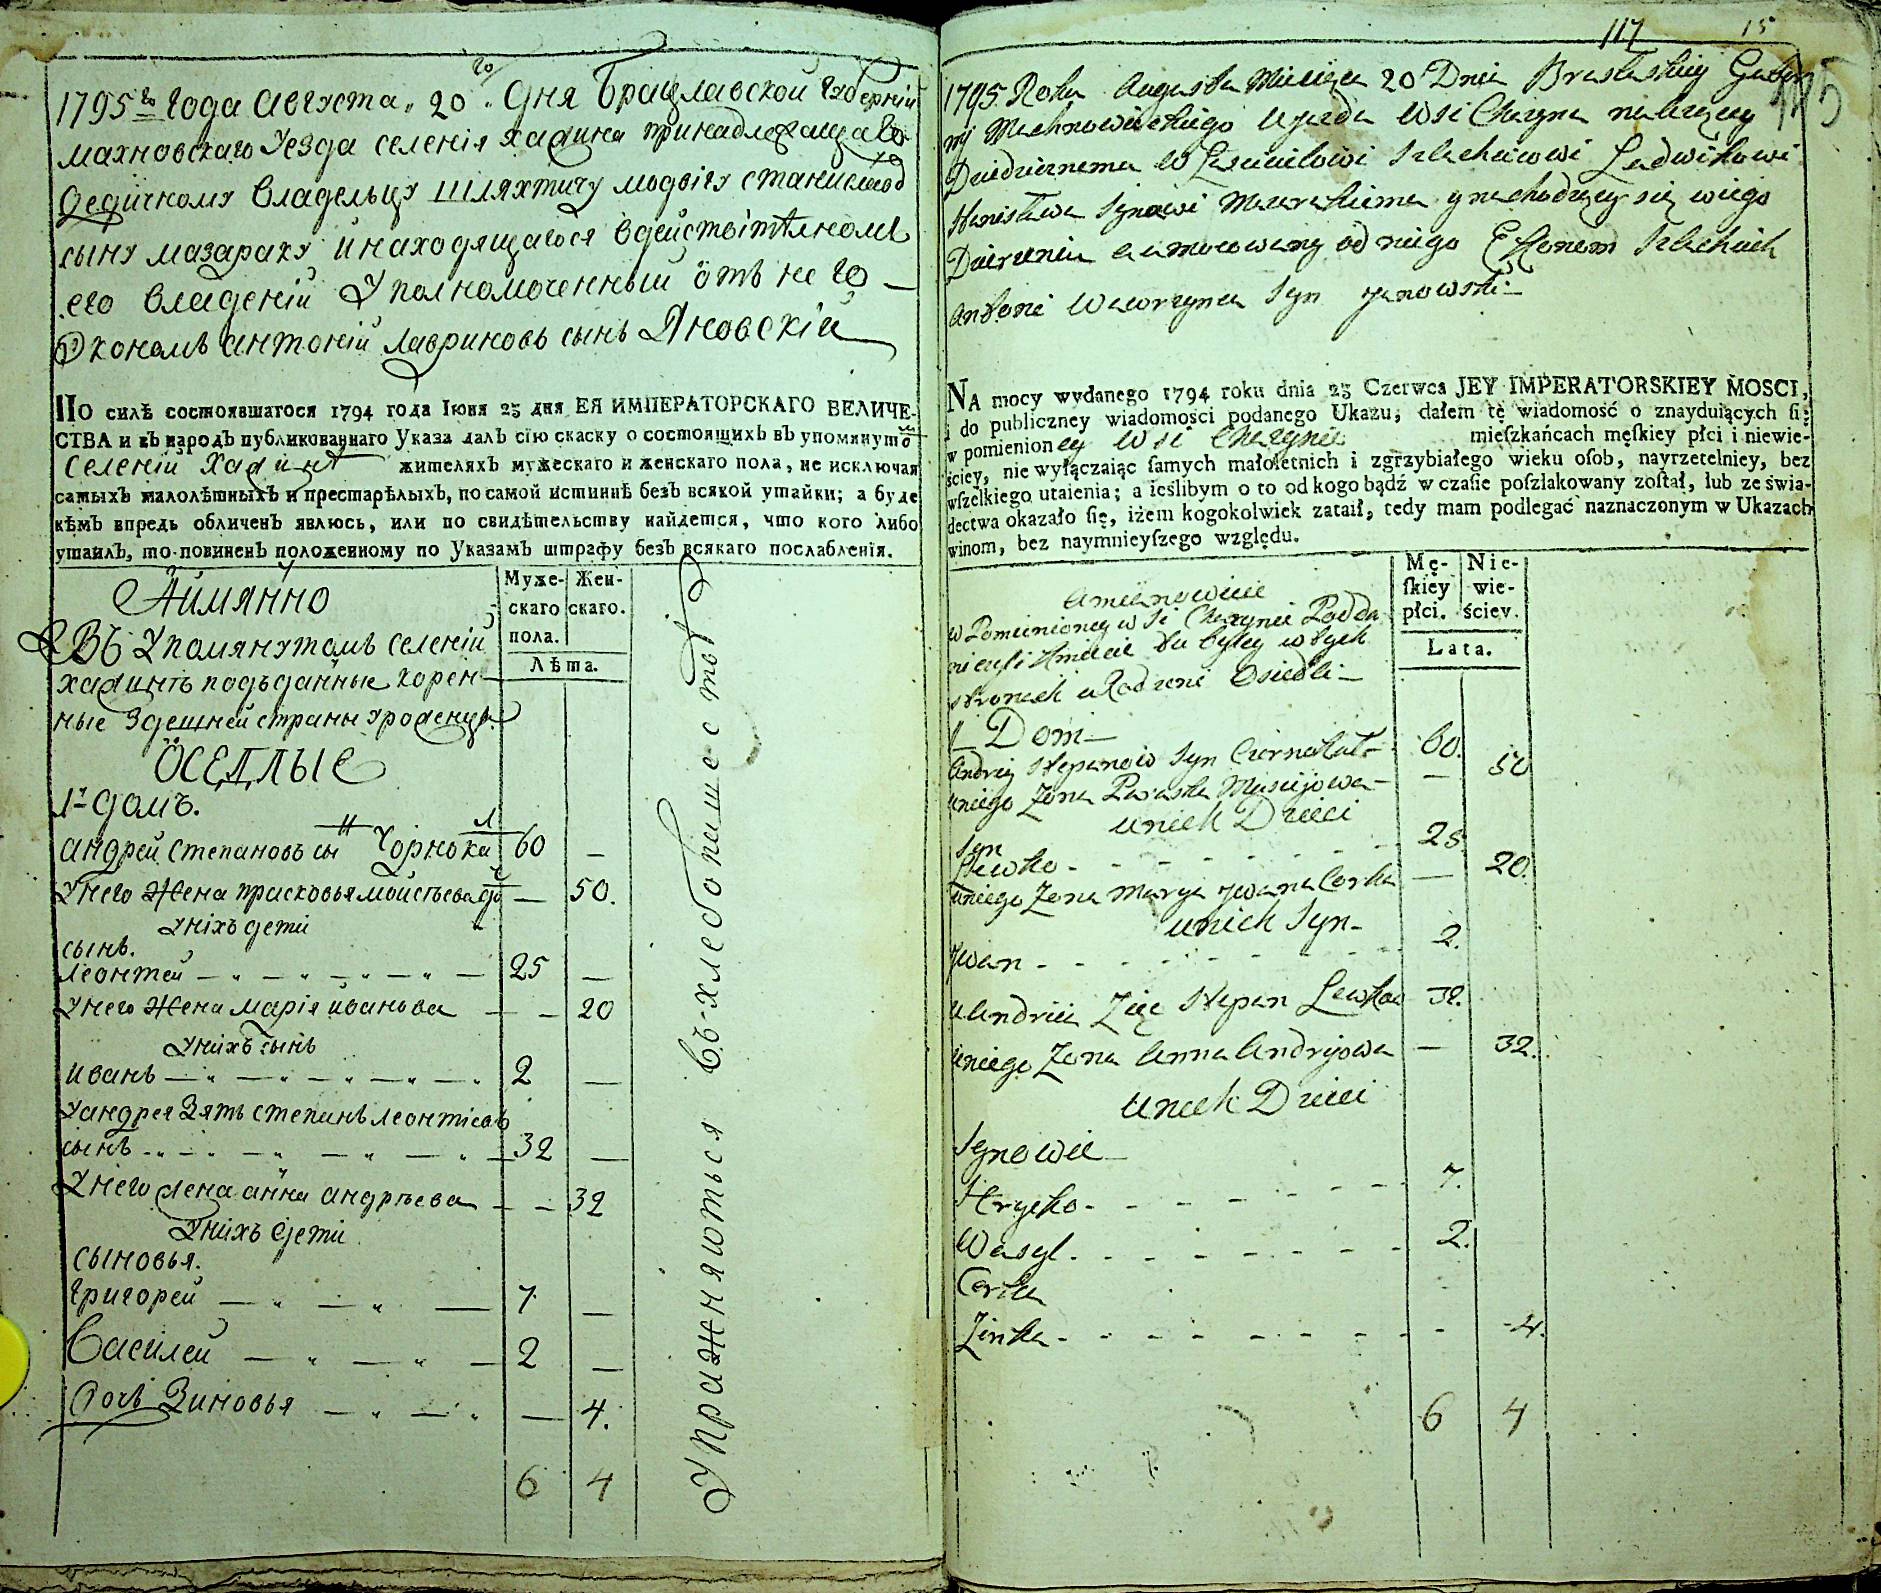 1795го года августа 20го дня Брацлавской губерніи
махновскаго уезда селенія хажина принадлежащаго
дедичному владельцу шляхтичу людвігу станиславо
сыну мазараку и находящагося в действітелномъ
его владеніи Уполномоченный отъ него
Экономъ антоній лавриновъ сынъ Яновскій
ПО силѣ состоявшагося 1794 года Іюня 23 дня ЕЯ ИМПЕРАТОРСКАГО ВЕЛИЧЕ-
СТВА и въ народъ публикованнаго Указа далъ сію скаску о состоящихъ въ упомянутo
селеніи Хажинѣ жителяхъ мужескаго и женскаго пола, не исключая
самыхъ малолѣтныхъ и престарѣлыхъ, по самой истиннѣ безъ всякой утайки; а буде
кѣмъ впредь обличенъ явлюсь, или по свидѣтельству найдется, что кого либо
утаилъ, то повиненъ положенному по Указамъ штрафу безъ всякаго послабленія.
Муже- Жен-
скаго скаго.
пола.
Лѣта.
Аймянно
Въ Упомянутомъ селеніи
хажинѣ подъданные корен-
ные здешней страны уроженцы
ОСЕДЛЫЕ
1й домъ.
андрей степановъ сынъ Чорнокал 60 —
У него жена присковья моисѣева доч — 50.
У ніхъ дети
сынъ.
леонтей 25 —
У него жена марія иванова — 20
У нихъ сынъ
иванъ 2 —
У андрея зять степанъ леонтіевъ
сынъ 32 —
У него жена анна андрѣева — 32
У нихъ дети
сыновья.
григорей 7 —
Василей 2 —
дочь Зиновья — 4.
6 4
Упражняються въ хлебопашествѣ
117 15
115
1795 Roku Augusta Miesiąca 20 Dnia Brasławskiey Guber
nij Machnowieckiego Ujazda Wsi Chażyna należącey
Dziedzicznemu Władzicielowi Szlachcicowi Ludwikowi
Stanisława Synowi Mazarakiemu y znachodzącey się w jego
Dzierżeniu Umocowany od niego Ekonom Szlachcic
Antoni Wawrzyna Syn Janowski
NA mocy wydanego 1794 roku dnia 23 Czerwca JEY IMPERATORSKIEY MOSCI,
i do publiczney wiadomości podanego Ukazu, dałem tę wiadomość o znayduiących ſię
w pomienioney Wsi Chażynie mieſzkańcach męſkiey płci i niewie-
ściey, nie wyłączaiąc ſamych małoletnich i zgrzybiałego wieku oſob, nayrzetelniey, bez
wſzelkiego utaienia; a ieślibym o to od kogo bądź w czaſie poſzlakowany zoſtał, lub ze świa-
dectwa okazało ſię, iżem kogokolwiek zataił, tedy mam podlegać naznaczonym w Ukazach
winom, bez naymnieyſzego względu.
Mę- Nie-
ſkiey wie-
płci. ściey.
Lata.
a mianowicie
w Pomienioney wsi Chażynie Podda
ni czyli Kmiecie tu byley w tych
stronach uRodzeni Osiedli
1 Dom
Andrey Stepanow Syn Czornokal 60. —
u niego Zona Paraska Mysiijowa — 50
u nich Dzieci
Syn
Lewko 25.
u niego Zona Marya Jwana Corka — 20.
u nich Syn
Jwan 2.
u Andria Zięc Stepan Lewkow 32.
u niego Zona Anna Andryjowa — 32.
u nich Dzieci
Synowie
Hrycko 7.
Wasyl 2.
Corka
Zinka 4.
6 4